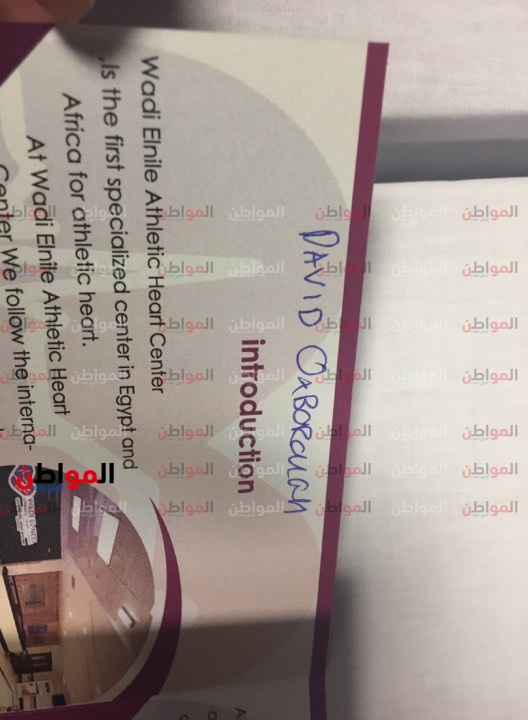 DAVID OXBOROUGH
introduction
Wadi Elnile Athletic Heart Center
,Is the first specialized center in Egypt and
Africa for athletic heart.
At Wadi Elnile Athletic Heart
Center We follow the interna-
المواطن